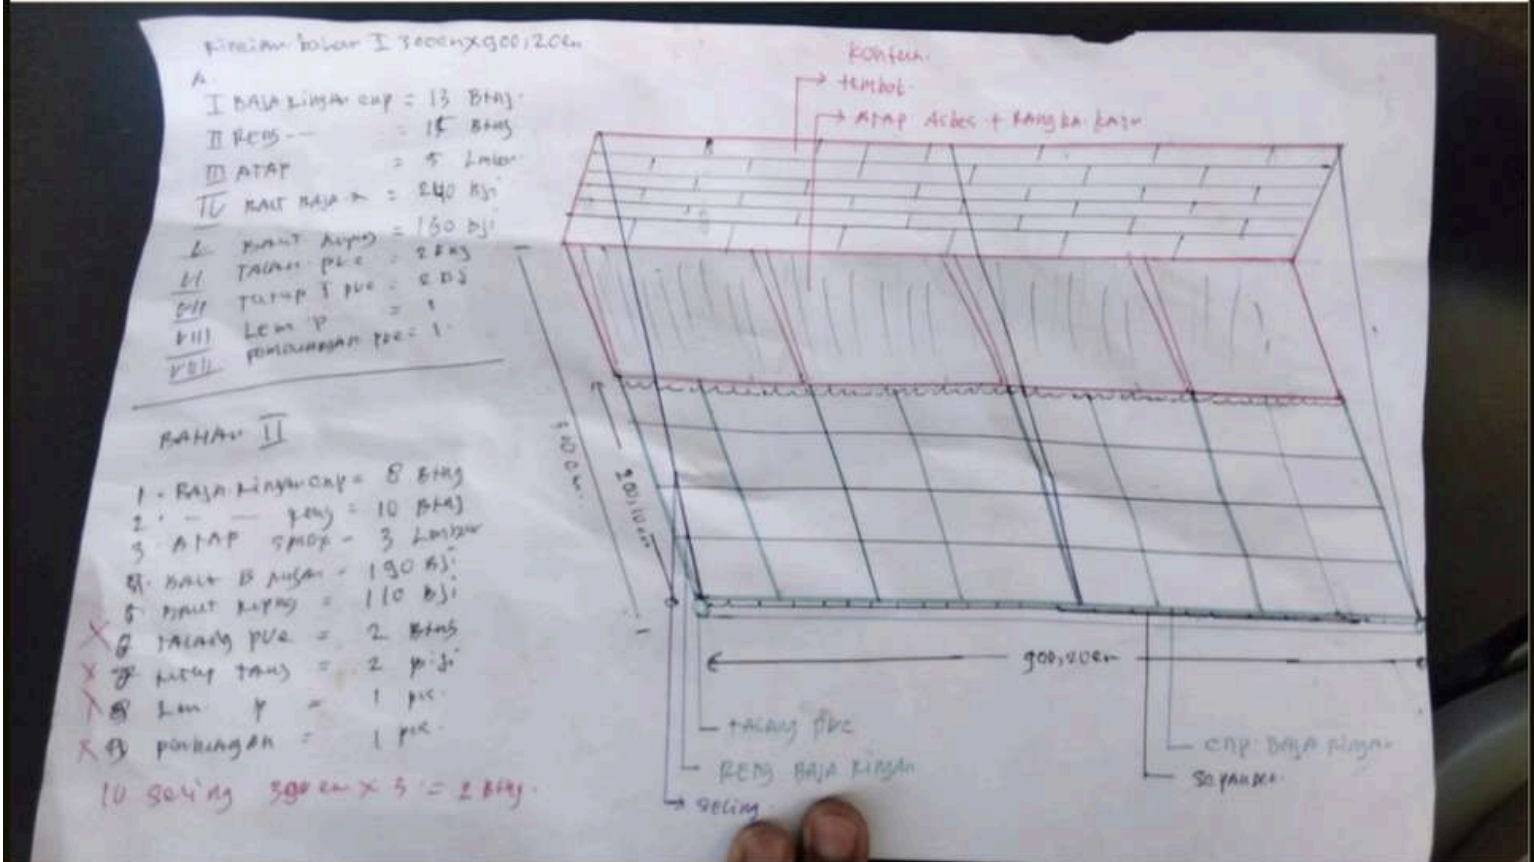 Rincian bahan I 300cm x 900,20cm
A.
I BAJA Ringan cnp = 13 Btng.
II RENG -- = 15 Btng
III ATAP = 5 Lmbar
IV BAUT BAJA = 240 Bji
BAUT = 150 Bji
VI TALANG PVC = 2 Btng
VII TUTUP T PVC = 2 Bj
VIII Lem P = 1
VIIII Pembuangan PVC = 1.
BAHAN II
1 - BAJA Ringan cnp = 8 Btng
2 - - Reng = 10 Btng
3 - ATAP - 3 Lmbar
4. BAUT B Ringan - 190 Bji
5 BAUT = 110 Bji
TALANG PVC = 2 Btng
tutup = 2 Biji
Lem P = 1 pic
pembuangan = 1 pic
10 Seling 390 cm x 3 = 2 Btng.
tembok
ATAP Asbes + Rangka kayu
900,20cm
TALANG PVC
RENG BAJA Ringan
seling
cnp BAJA Ringan